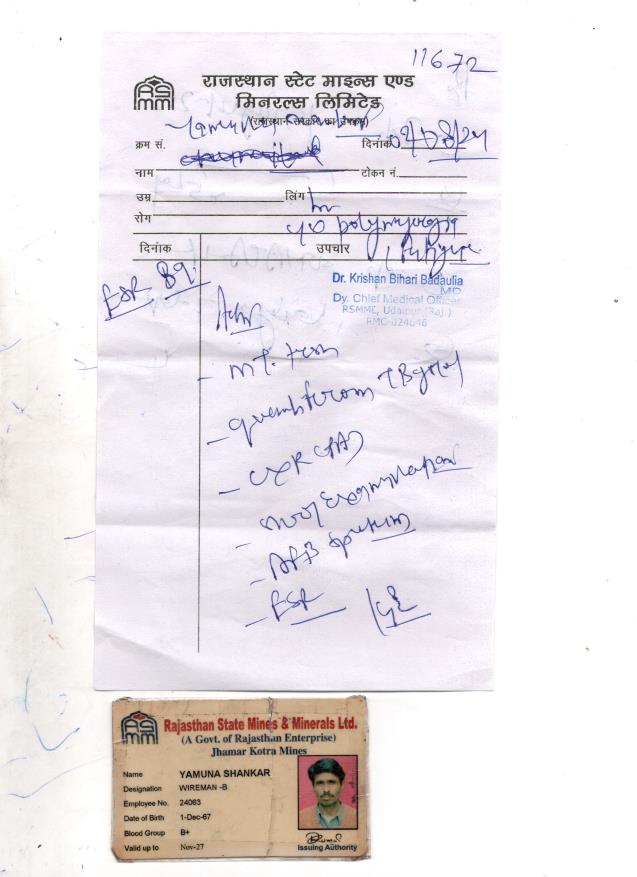 11672
राजस्थान स्टेट माइन्स एण्ड
मिनरल्स लिमिटेड
(राजस्थान सरकार का उपक्रम)
क्रम सं. दिनांक
नाम टोकन नं.
उम्र लिंग
रोग
c/o polymyalgia
दिनांक उपचार
ESR 89.
Dr. Krishan Bihari Badaulia
MD
Dy. Chief Medical Officer
RSMME, Udaipur (Raj.)
RMC-024646
Adv
- MT.
- TB gold
- CXR (PA)
- examination
- AFB Sputum
- ESR
RSMM
Rajasthan State Mines & Minerals Ltd.
(A Govt. of Rajasthan Enterprise)
Jhamar Kotra Mines
Name YAMUNA SHANKAR
Designation WIREMAN -B
Employee No. 24063
Date of Birth 1-Dec-67
Blood Group B+
Valid up to Nov-27
Issuing Authority